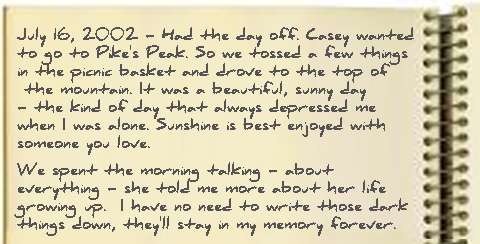 July 16, 2002 - Had the day off. Casey wanted
to go to Pike's Peak. So we tossed a few things
in the picnic basket and drove to the top of
the mountain. It was a beautiful, sunny day
- the kind of day that always depressed me
when I was alone. Sunshine is best enjoyed with
someone you love.
We spent the morning talking - about
everything - she told me more about her life
growing up. I have no need to write those dark
things down, they'll stay in my memory forever.